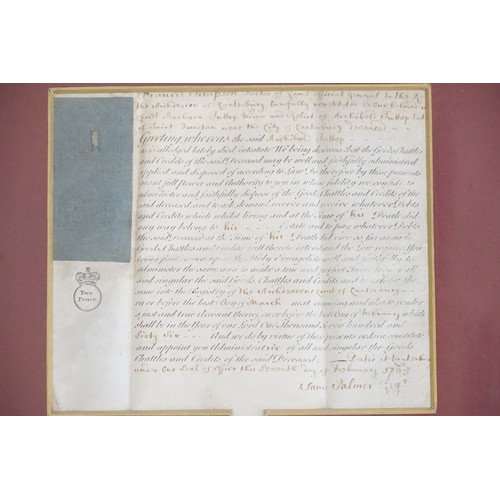 Francis Simpson Doctor of Laws Official General to the
the Archdeacon of Canterbury lawfully constituted To our beloved in
Christ Barbara Widow and Relict of Archibol late
of Saint Dunstan near the City of Canterbury deceased
Greeting whereas the said Archibol
as alledged lately died intestate We being desirous that the Goods Chattles
and Credits of the said Deceased may be well and faithfully administred
applied and disposed of according to Law Do therefore by these presents
grant full power and Authority to you in whose fidelity we confide to
administer and faithfully dispose of the Goods Chattles and Credits of the
said deceased and to ask demand recover and receive whatever Debts
and Credits which whilst living and at the time of his Death did
any way belong to his Estate and to pay whatever Debts
the said Deceased at the Time of his Death did owe so far as such
Goods Chattles and Credits will thereto extend and the Law requires You
being first sworn upon the Holy Evangelists well and faithfully to
administer the same and to make a true and perfect Inventory of all
and singular the said Goods Chattles and Credits and to exhibit the
same into the Registry of the Archdeacons Court of Canterbury
on or before the last Day of March next ensuing and also to render
a just and true Account thereof on or before the last Day of February which
shall be in the Year of our Lord One Thousand Seven Hundred and
Sixty Six And we do by virtue of these presents ordain constitute
and appoint you Administratrix of all and singular the Goods
Chattles and Credits of the said Deceased Dated at Canterbury
under our Seal of Office this Seventh day of February 1765
Two
Pence
Sam Palmer